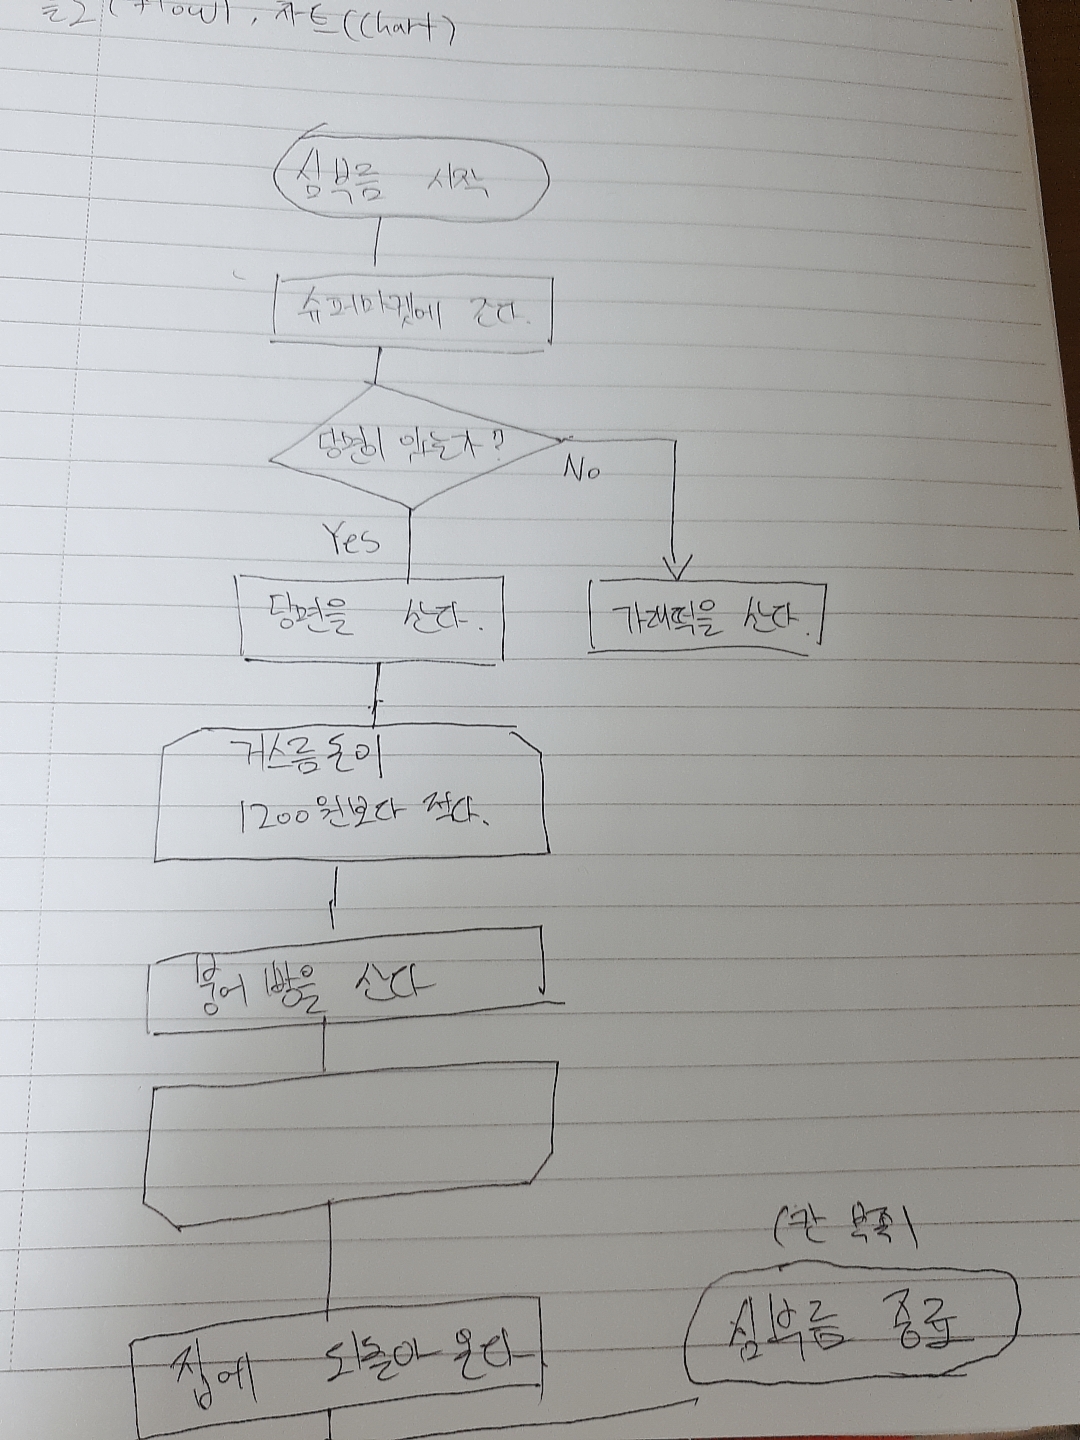 (Flow), 차트(Chart)
심부름 시작
슈퍼마켓에 간다.
당면이 있는가?
No
Yes
당면을 산다.
가래떡을 산다.
거스름돈이
1200원보다 적다.
붕어빵을 산다
(칸 부족)
심부름 종료
집에 되돌아 온다